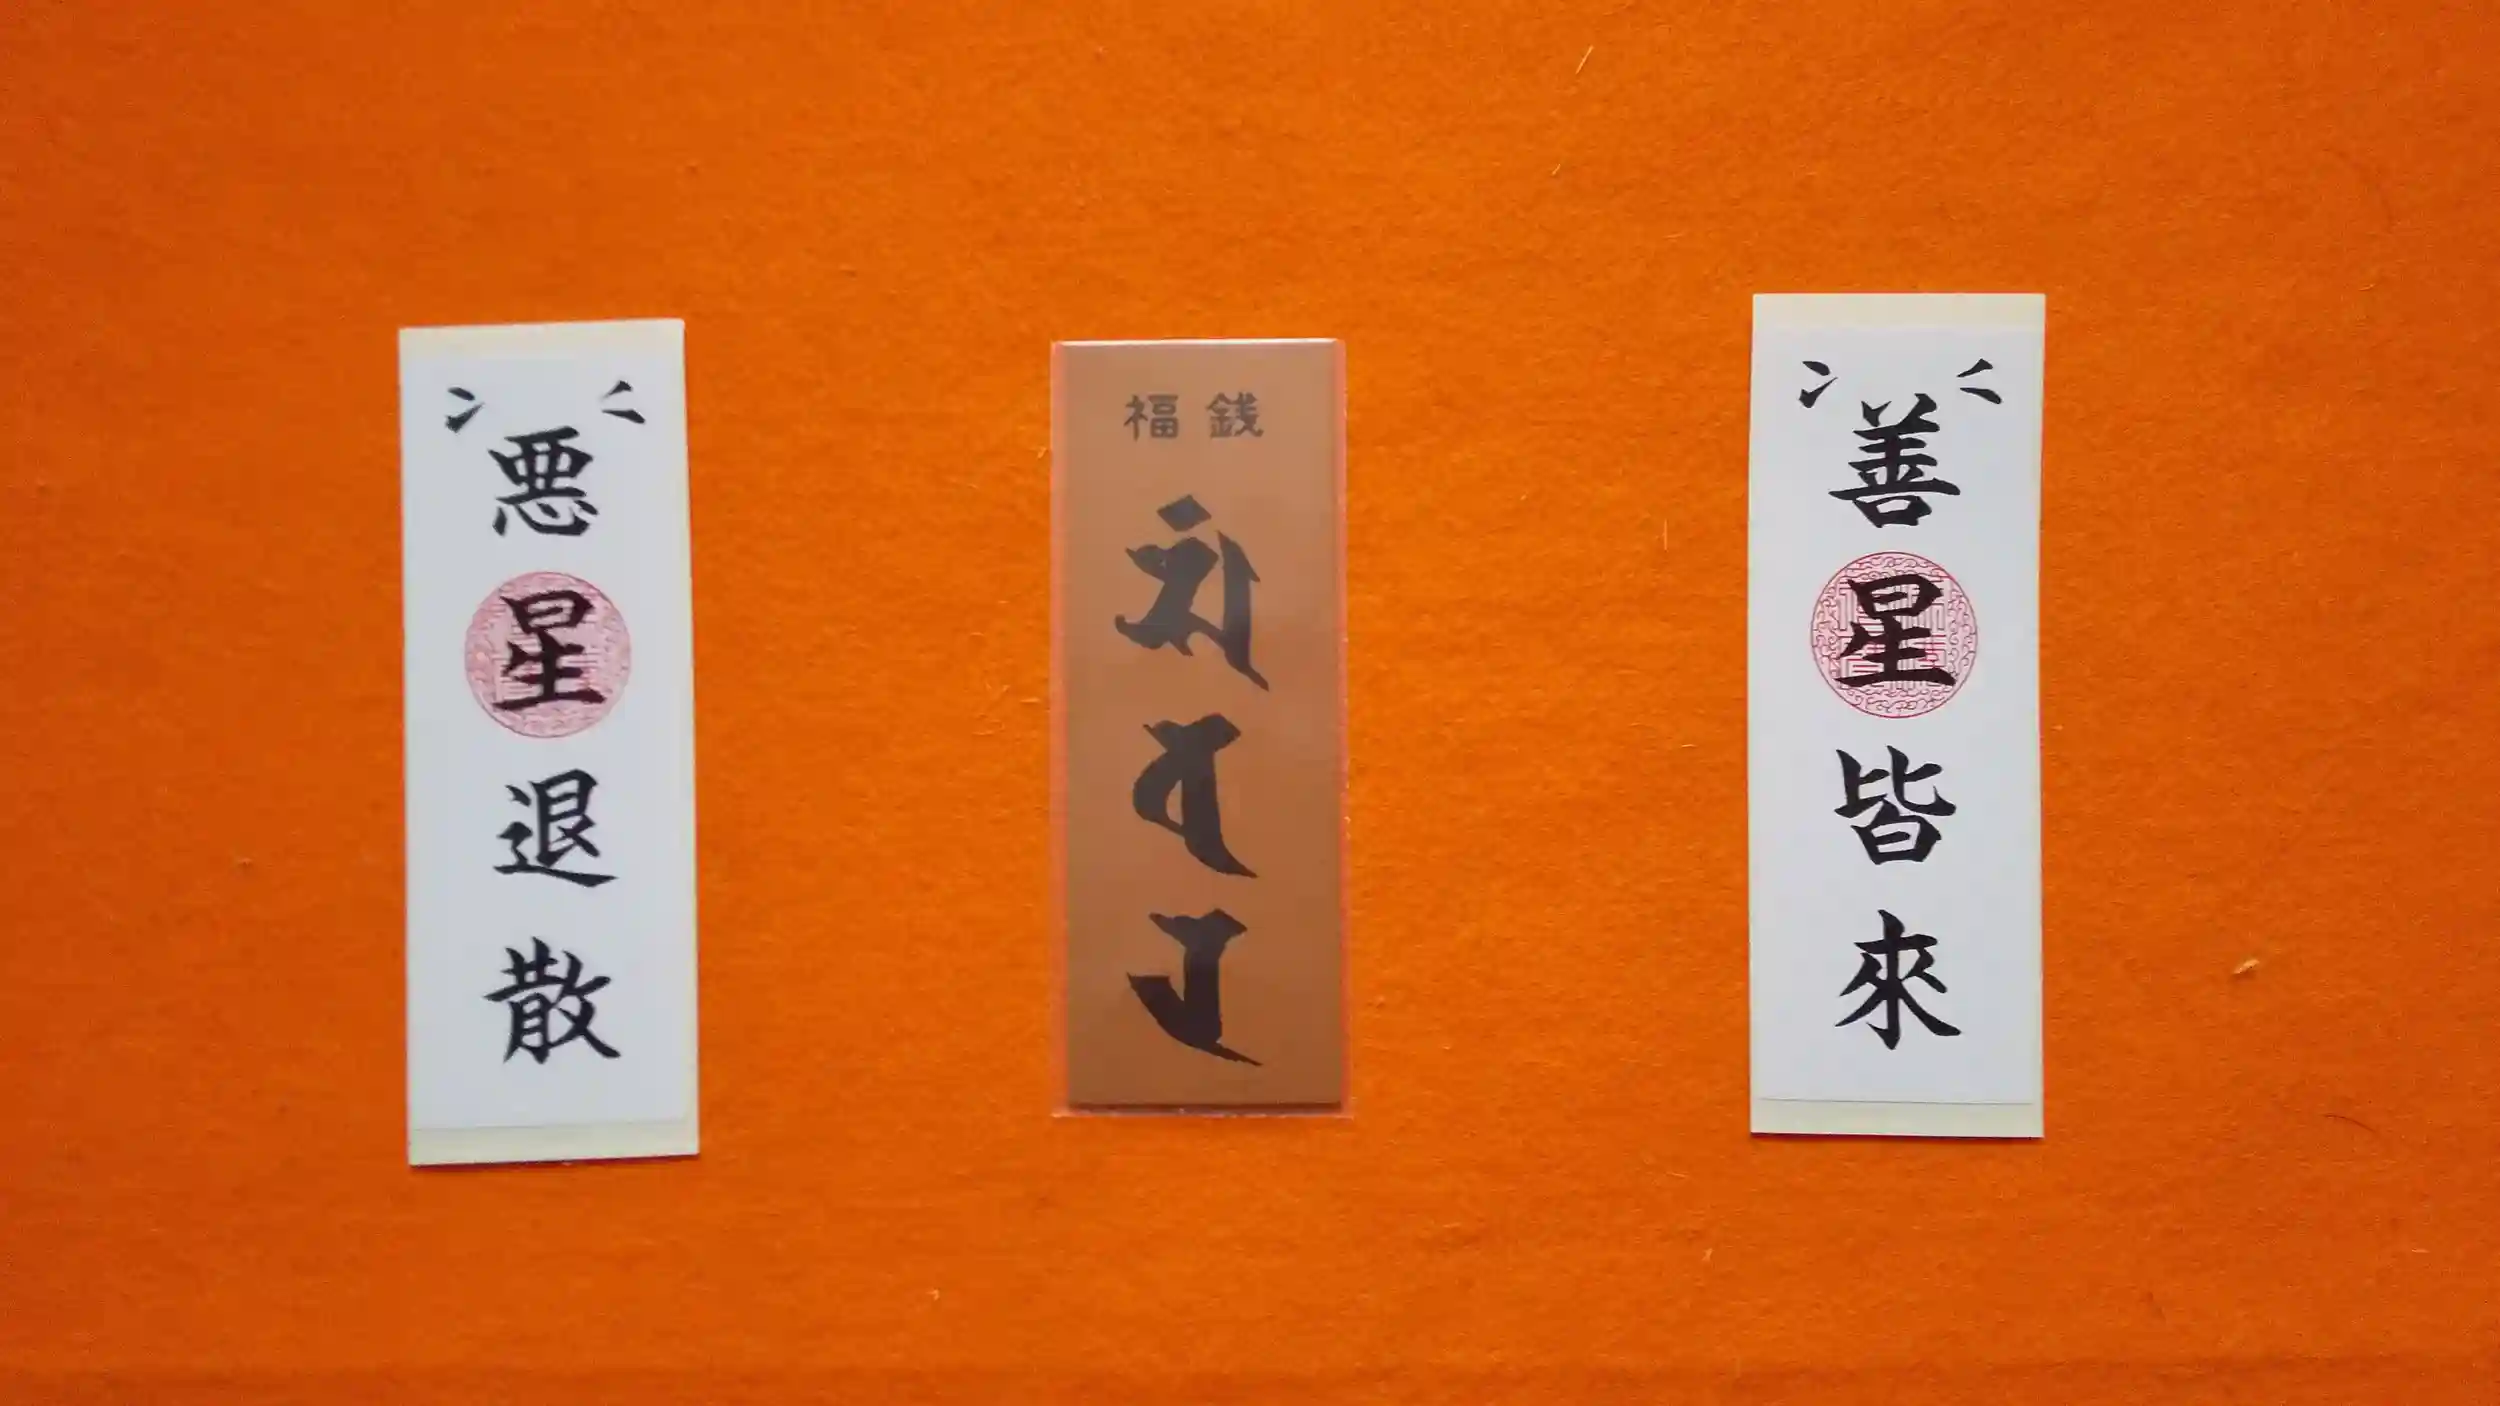 悪星退散
福銭
善星皆來